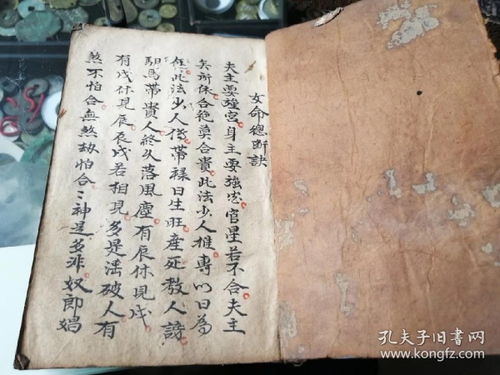 女命總斷訣
夫主要強宮身主要強宮星若不合夫主
矣所休合絶莫合貴此法少人推專以日為
在此法少人傳帶祿日生旺産死教人諦
馹馬帶貴人終久落風塵有辰休現戌
有戌休現辰辰戌若相見多是滛破人有
煞不怕合無煞却怕合合神迳多非奴即娼
孔夫子旧书网
www.kongfz.com